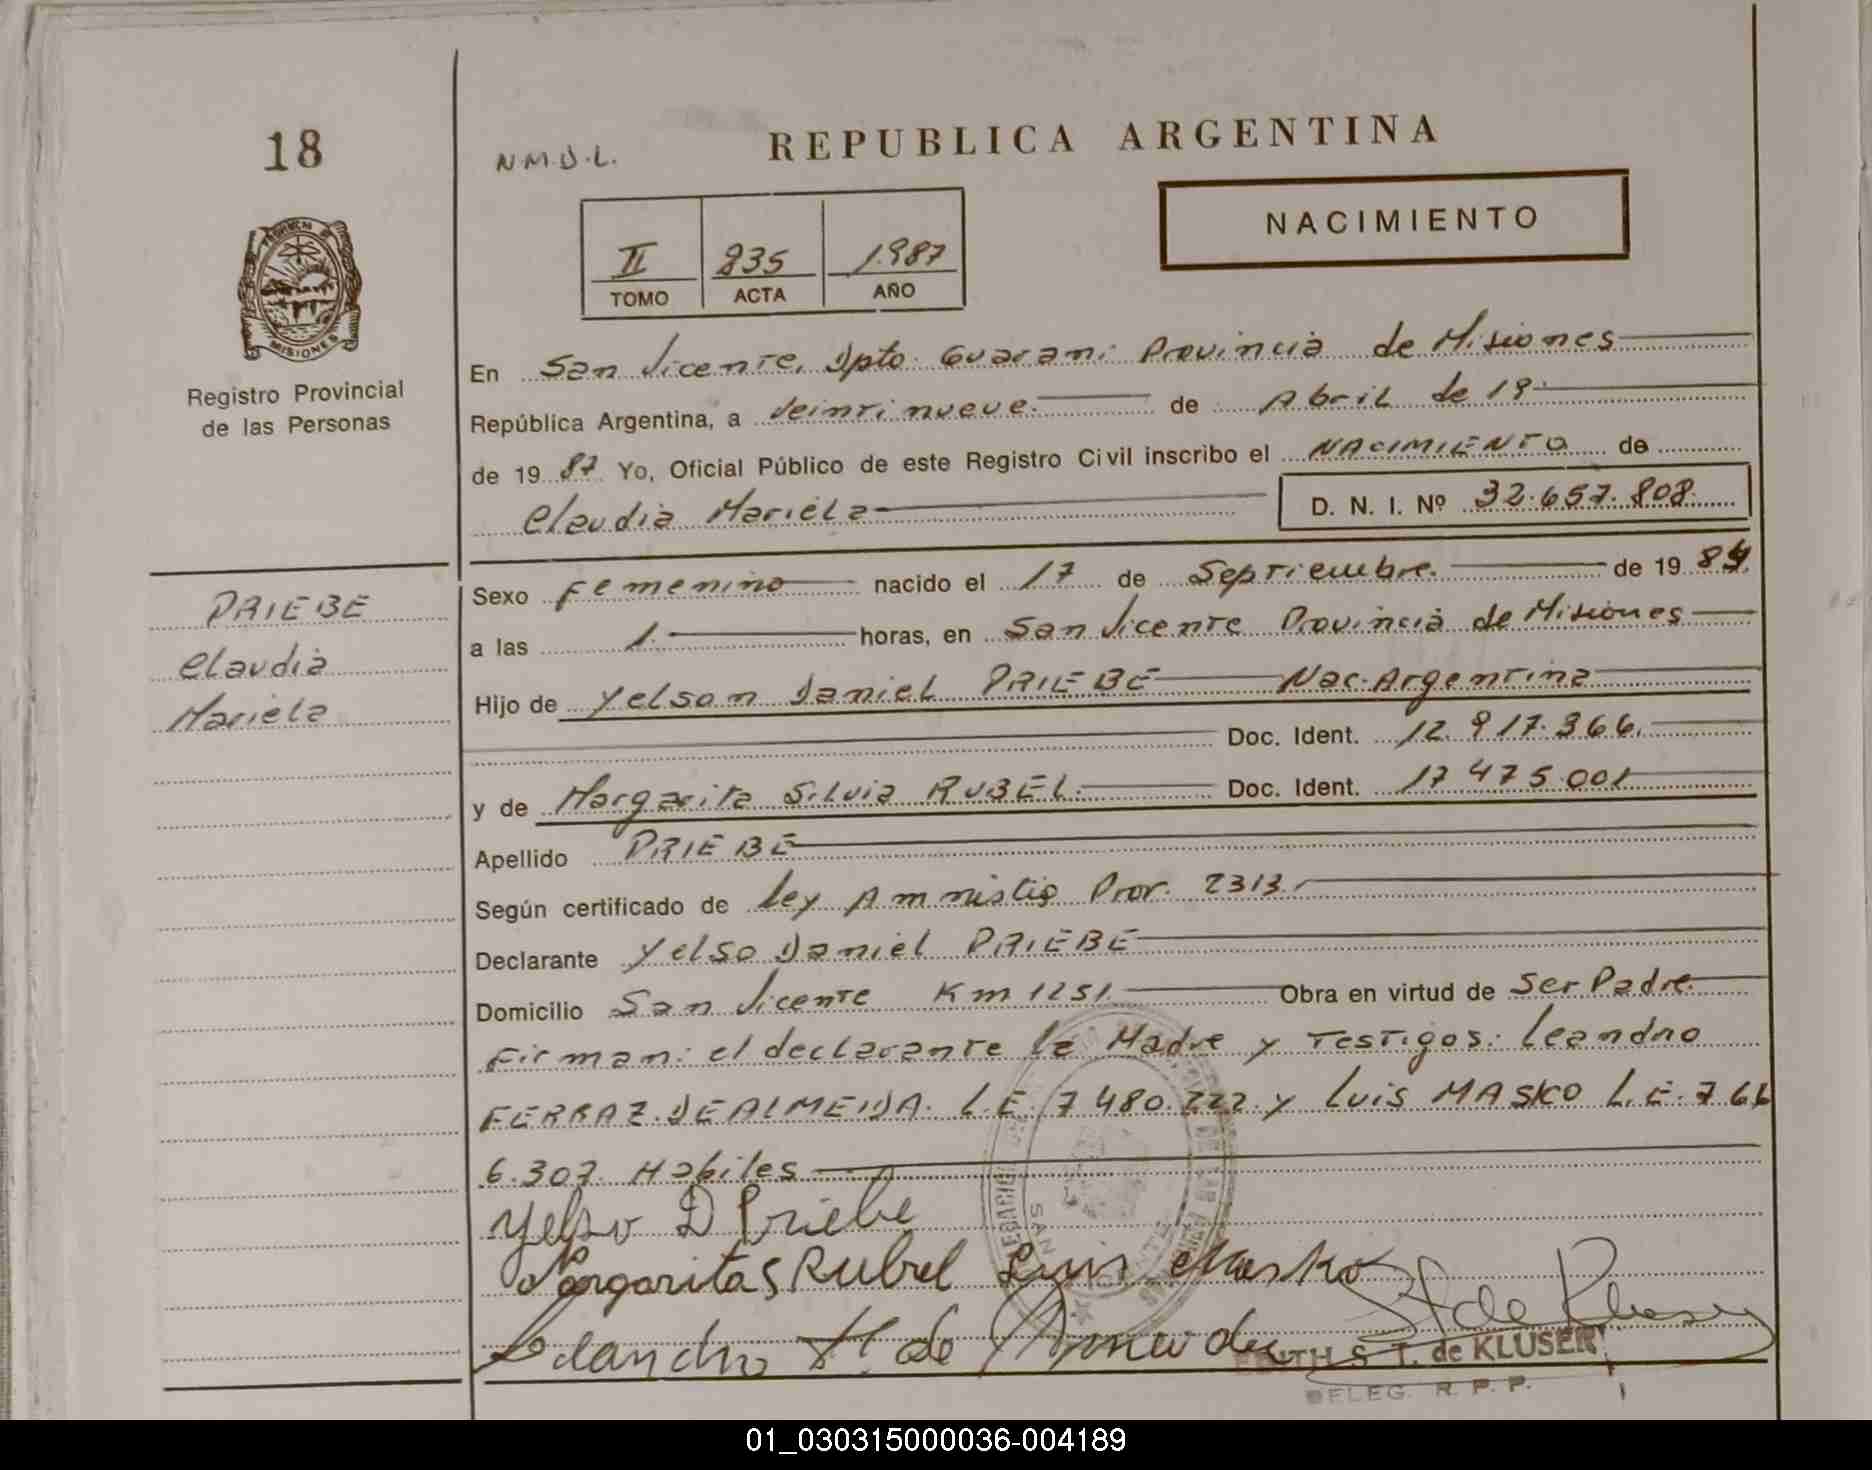 18
N.M.D.L.
REPUBLICA ARGENTINA
NACIMIENTO
II 835 1.987
TOMO ACTA AÑO
MISIONES
Registro Provincial
de las Personas
En San Vicente, Dpto. Guarani Provincia de Misiones
República Argentina, a Veintinueve de Abril de 19
de 19 87 Yo, Oficial Público de este Registro Civil inscribo el NACIMIENTO de
Claudia Mariela D. N. I. Nº 32.657.808.
PRIEBE
Claudia
Mariela
Sexo Femenino nacido el 17 de Septiembre. de 19 84
a las 1. horas, en San Vicente Provincia de Misiones
Hijo de Yelson Daniel PRIEBE Nac. Argentina
Doc. Ident. 12.917.366.
y de Margarita Silvia RUBEL. Doc. Ident. 17 475.001
Apellido PRIEBE
Según certificado de Ley Amnistia Pror. 2313.
Declarante Yelso Daniel PRIEBE
Domicilio San Vicente Km 1251. Obra en virtud de Ser Padre.
Firman: el declarante la Madre y Testigos: Leandro
FERRAZ DE ALMEIDA. L.E. 7 480.222. y Luis MASKO L.E. 7.66
6.307. Habiles
Yelso D Priebe
Margarita S Rubel Luis Masko
EDITH S. T. de KLUSER
DELEG. R. P. P.
01_030315000036-004189